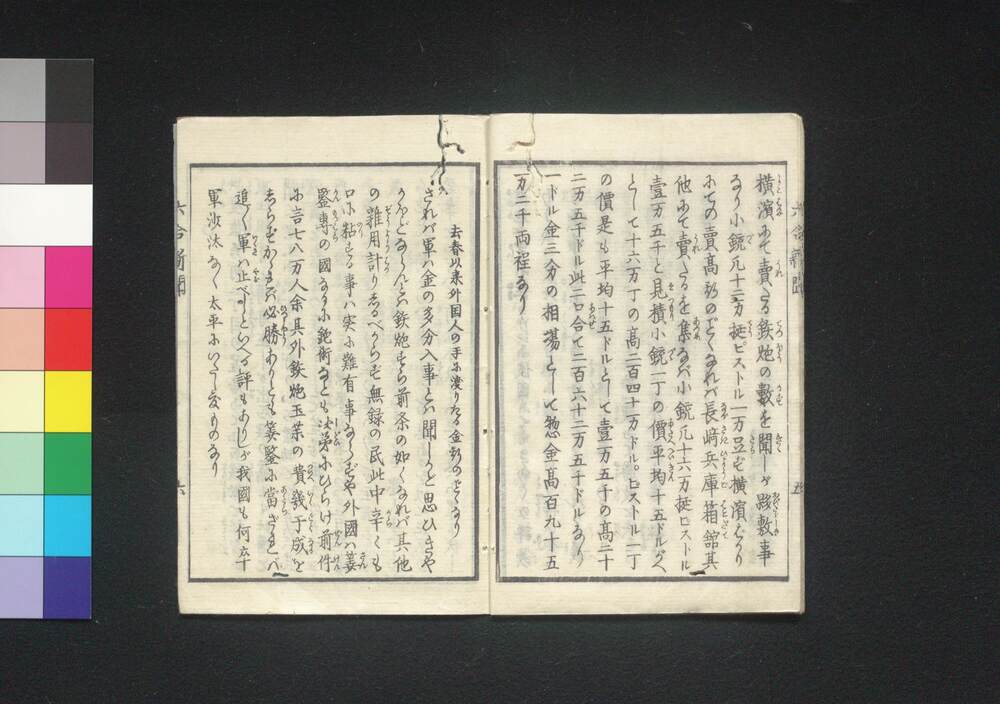 横濱にて賣たる鉄炮の數を聞しが夥敷事
なり小銃凡十二万挺ピストル一万豆ぢ横濱はかり
にての賣高物のごとくなれバ長﨑兵庫箱舘其
他にて賣たるを集なバ小銃凡十六万挺ピストル
壹万五千と見積小銃一丁の價平均十五ドルがへ
として十六万丁の高二百四十万ドル。ピストル一丁
の價是も平均十五ドルとして壹万五千の高二十
二万五千ドル此二口合て二百六十二万五千ドルなり
一ドル金三分の相場として惣金高百九十五
万二千両程なり
五
去春以来外国人の手に渡りたる金如のごとくなり
されバ軍ハ金の多分入事とハ聞しかと思ひきや
かほどならんとハ鉄炮すら前条の如くなれバ其他
の雜用計りしるべからずや無録の民此中辛くも
口に粘する事ハ実に難有事ならずや外國ハ
鑒専の國なり小銃術なとも次第にひらけ前件
に言七八万人余具外鉄炮玉薬の費幾千成を
しらずかゝれバ必勝ありとも鑒に當ざれバ
追々軍ハ止べしといへる評もありしが我國も何卒
軍沙汰なく太平にいたし度ものなり
六合新聞
六